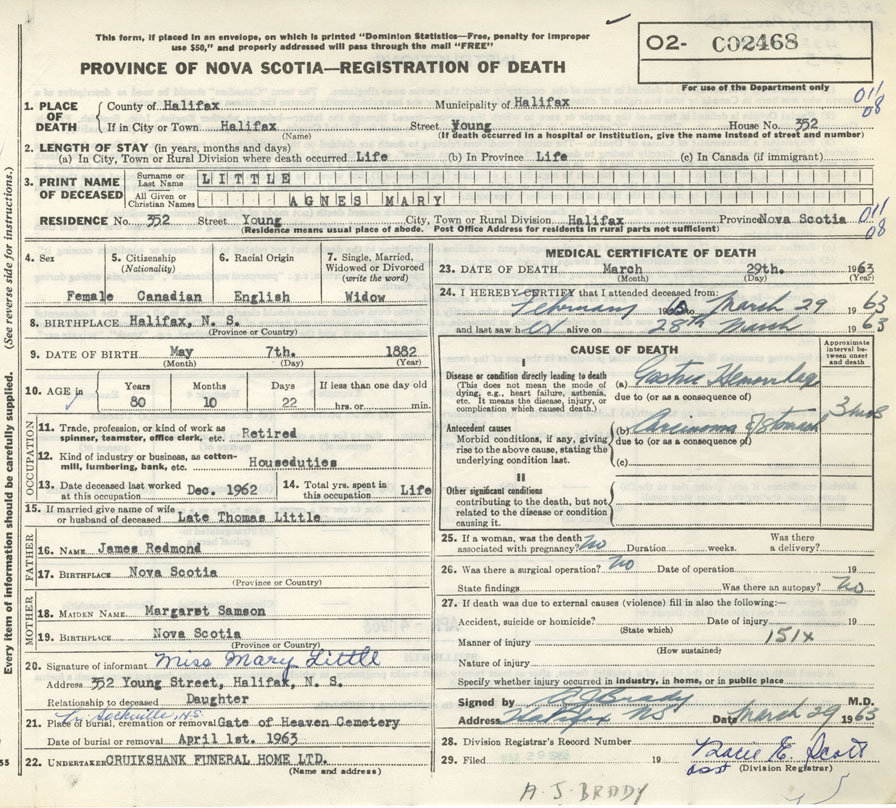 This form, if placed in an envelope, on which is printed "Dominion Statistics—Free, penalty for improper
use $50," and properly addressed will pass through the mail "FREE"
PROVINCE OF NOVA SCOTIA—REGISTRATION OF DEATH
02- C02468
For use of the Department only
1. PLACE OF DEATH
County of Halifax Municipality of Halifax
If in City or Town Halifax Street Young House No. 352
(Name) (If death occurred in a hospital or institution, give the name instead of street and number)
011
08
2. LENGTH OF STAY (in years, months and days)
(a) In City, Town or Rural Division where death occurred Life (b) In Province Life (c) In Canada (if immigrant)
3. PRINT NAME OF DECEASED
Surname or Last Name LITTLE
All Given or Christian Names AGNES MARY
RESIDENCE No. 352 Street Young City, Town or Rural Division Halifax Province Nova Scotia
(Residence means usual place of abode. Post Office Address for residents in rural parts not sufficient)
011
08
4. Sex 5. Citizenship (Nationality) 6. Racial Origin 7. Single, Married, Widowed or Divorced (write the word)
Female Canadian English Widow
8. BIRTHPLACE Halifax, N. S.
(Province or Country)
9. DATE OF BIRTH May 7th. 1882
(Month) (Day) (Year)
10. AGE in Years Months Days If less than one day old
80 10 22 hrs. or min.
OCCUPATION
11. Trade, profession, or kind of work as spinner, teamster, office clerk, etc. Retired
12. Kind of industry or business, as cotton-mill, lumbering, bank, etc. Houseduties
13. Date deceased last worked at this occupation Dec. 1962 14. Total yrs. spent in this occupation Life
15. If married give name of wife or husband of deceased Late Thomas Little
FATHER
16. NAME James Redmond
17. BIRTHPLACE Nova Scotia
(Province or Country)
MOTHER
18. MAIDEN NAME Margaret Samson
19. BIRTHPLACE Nova Scotia
(Province or Country)
20. Signature of informant Miss Mary Little
Address 352 Young Street, Halifax, N. S.
Relationship to deceased Daughter
Sackville, N.S.
21. Place of burial, cremation or removal Gate of Heaven Cemetery
Date of burial or removal April 1st. 1963
22. UNDERTAKER CRUIKSHANK FUNERAL HOME LTD.
(Name and address)
Every item of information should be carefully supplied. (See reverse side for instructions.)
55
MEDICAL CERTIFICATE OF DEATH
23. DATE OF DEATH March 29th. 1963
(Month) (Day) (Year)
24. I HEREBY CERTIFY that I attended deceased from:
February 19 to March 29 1963
and last saw her alive on 28th March 1963
CAUSE OF DEATH
Approximate interval between onset and death
I
Disease or condition directly leading to death
(This does not mean the mode of dying, e.g., heart failure, asthenia, etc. It means the disease, injury, or complication which caused death.)
(a) Gastric Hemorrhage
due to (or as a consequence of)
3 hrs
Antecedent causes
Morbid conditions, if any, giving rise to the above cause, stating the underlying condition last.
(b) Carcinoma of Stomach
due to (or as a consequence of)
(c)
II
Other significant conditions
contributing to the death, but not related to the disease or condition causing it.
25. If a woman, was the death associated with pregnancy? No Duration weeks. Was there a delivery?
26. Was there a surgical operation? No Date of operation 19
State findings Was there an autopsy? No
27. If death was due to external causes (violence) fill in also the following:—
Accident, suicide or homicide? Date of injury 19
(State which)
151X
Manner of injury
(How sustained)
Nature of injury
Specify whether injury occurred in industry, in home, or in public place
Signed by A J Brady M.D.
Address Halifax NS Date March 29 1963
28. Division Registrar's Record Number
29. Filed 19 Scott
asst (Division Registrar)
A. J. BRADY